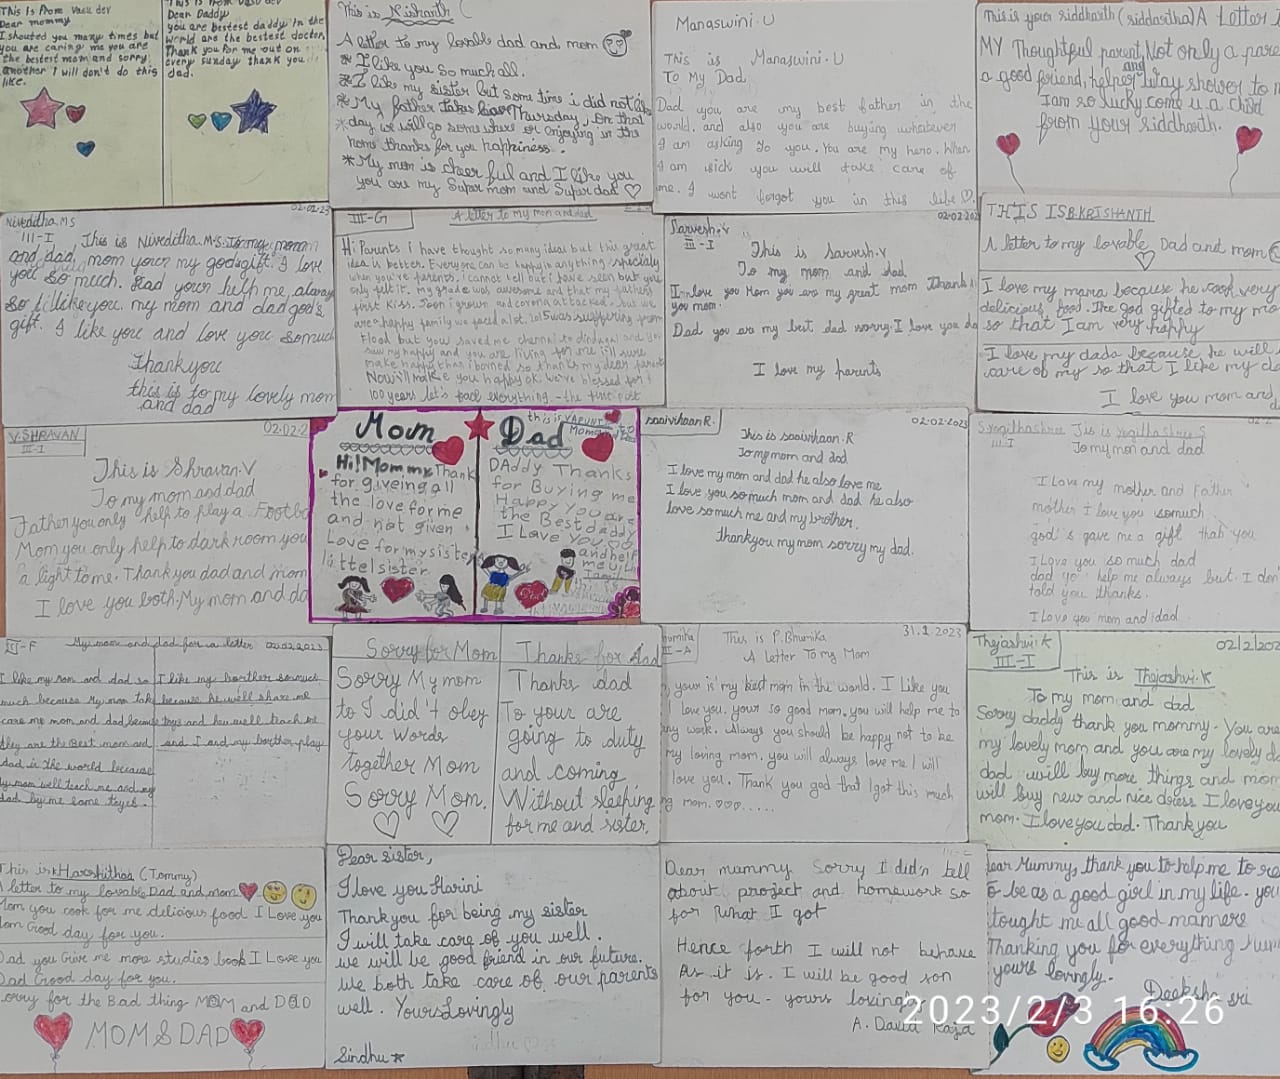 This is Prom Vasu dev
Dear mommy
I shouted you many times but
you are caring me you are
the bestest mom and sorry
another I will don't do this
like.
This is Prom Vasu dev
Dear Daddy
you are bestest daddy in the
world are the bestest doctor,
Thank you for me out on
every sunday thank you
dad.
This is Nishanth (
A letter to my lovable dad and mom
* I like you so much all.
* I like my sister but some time i did not like
* My father takes leave Thursday, on that
* day we will go somewhere or enjoying in the
home thanks for you happiness.
* My mom is cheerful and I like you
you are my Super mom and Super dad ♡
Manaswini. U
This is Manaswini. U
To My Dad
Dad you are my best father in the
world. and also you are buying whatever
I am asking to you. You are my hero. When
I am sick you will take care of
me. I wont forgot you in this life ♡.
This is your siddharth (siddartha) A Letter
MY Thoughtful parent, Not only a pare
a good friend, helper and Way shower to m
I am so lucky come u a child
from your siddharth.
Niveditha. M.S
02.02.23
III-I
This is Niveditha.M.S. To my mom
and dad, mom your my gods gift. I love
you so much. Dad your help me always
so i like you. my mom and dad god's
gift. I like you and love you so much
Thank you
this is to my lovely mom
and dad
III-G
A letter to my mom and dad
Hi Parents i have thought so many ideas but this great
idea is better. Everyone can be happy in anything specialy
when you're parents. i cannot tell but i have seen but you
only felt it. my grade was awesome and that my father's
first kiss. Soon i grown and corona attacked. but we
are a happy family we faced a lot. 2015 was suffering from
Flood but you saved me chennai to dindugal and you
saw my happy and you are living for me i'll sure
make happy than i borned so thanks my dear parents
Now i'll make you happy ok. we've blessed for
100 years let's face everything. - the first
Sarvesh. V
02.02.202
III - I
This is Sarvesh. V
To my mom and dad
I love you Mom you are my great mom Thank
you mom.
Dad you are my best dad sorry. I love you da
I love my parents
THIS IS B.KRISHANTH
A letter to my lovable Dad and mom
♡
I love my mama because he cook very
delicious food. The god gifted to my mo
so that I am very happy
I love my dada because he will
care of my so that I like my da
I love you mom and
V. SHRAVAN
III-I
02.02.2
This is Shravan. V
To my mom and dad
Father you only help to play a Footb
Mom you only help to dark room you
a light to me. Thank you dad and mom
I love you both. My mom and da
Mom
Hi! Mommy Thank
for giveing all
the love for me
and not given
Love for my sister
littel sister
Dad
this is VARUN
DAddy Thanks
for Buying me
Happy You are
the Best daddy
I Love You
and help
me
saaivihaan R.
02-02-2023
This is saaivihaan. R
To my mom and dad
I love my mom and dad he also love me
I love you so much mom and dad he also
love so much me and my brother.
Thank you my mom sorry my dad.
S. yogithashree
III-I
Tis is yogithashree S
To my mom and dad
I Love my mother and Father
mother I love you somuch
god's gave me a gift thah you
I Love you so much dad
dad yo' help me always but I don
told you thanks.
I Love you mom and dad
III-F
My mom and dad for a letter
02.02.2023
I like my son and dad so
much because My mom take
care me mom and dad because
they are the Best mom and
dad in the world because
My mom well teach me and my
dad by me some toyes.
I like my borther so much
because he well share me
toys and he well teach me
and I and my borther play
Sorry for Mom
Sorry My mom
to I did't obey
your Words
together Mom
Sorry Mom.
♡ ♡
Thanks for dad
Thanks dad
To your are
going to duty
and coming
Without sleeping
for me and sister.
31.1.2023
This is P. Bhumika
A Letter To my Mom
your is my best mom in the world. I Like you
I love you. your so good mom. you will help me to
my work. Always you should be happy not to be
my loving mom. you will always love me I will
love you. Thank you god that I got this much
mom. ♡♡♡......
Thejashvi. K
III-I
02/2/202
This is Thejashvi. K
To my mom and dad
Sorry daddy thank you mommy. You are
my lovely mom and you are my lovely da
dad will buy more things and mom
will buy new and nice dress I love you
mom. I love you dad. Thank you
This is Harshitha (Tommy)
A letter to my lovable Dad and mom
Mom you cook for me delicious food I Love you
Mom Good day for you.
Dad you Give me more studies book I Love you
Dad Good day for you.
sorry for the Bad thing MOM and DAD
MOM & DAD
Dear sister,
I love you Harini
Thank you for being my sister
I will take care of you well.
we will be good friend in our future.
we both take care of our parents
well. Yours Lovingly
Sindhu
Dear mummy Sorry I didn't tell
about project and homework so
for what I got
Hence forth I will not behave
As it is. I will be good son
for you - yours loving
A. Daita Raja
Dear Mummy, thank you to help me to re
to be as a good girl in my life. you
tought me all good manners
Thanking you for everything Mum
yours lovingly.
Deeksha sri
2023/2/3 16:26